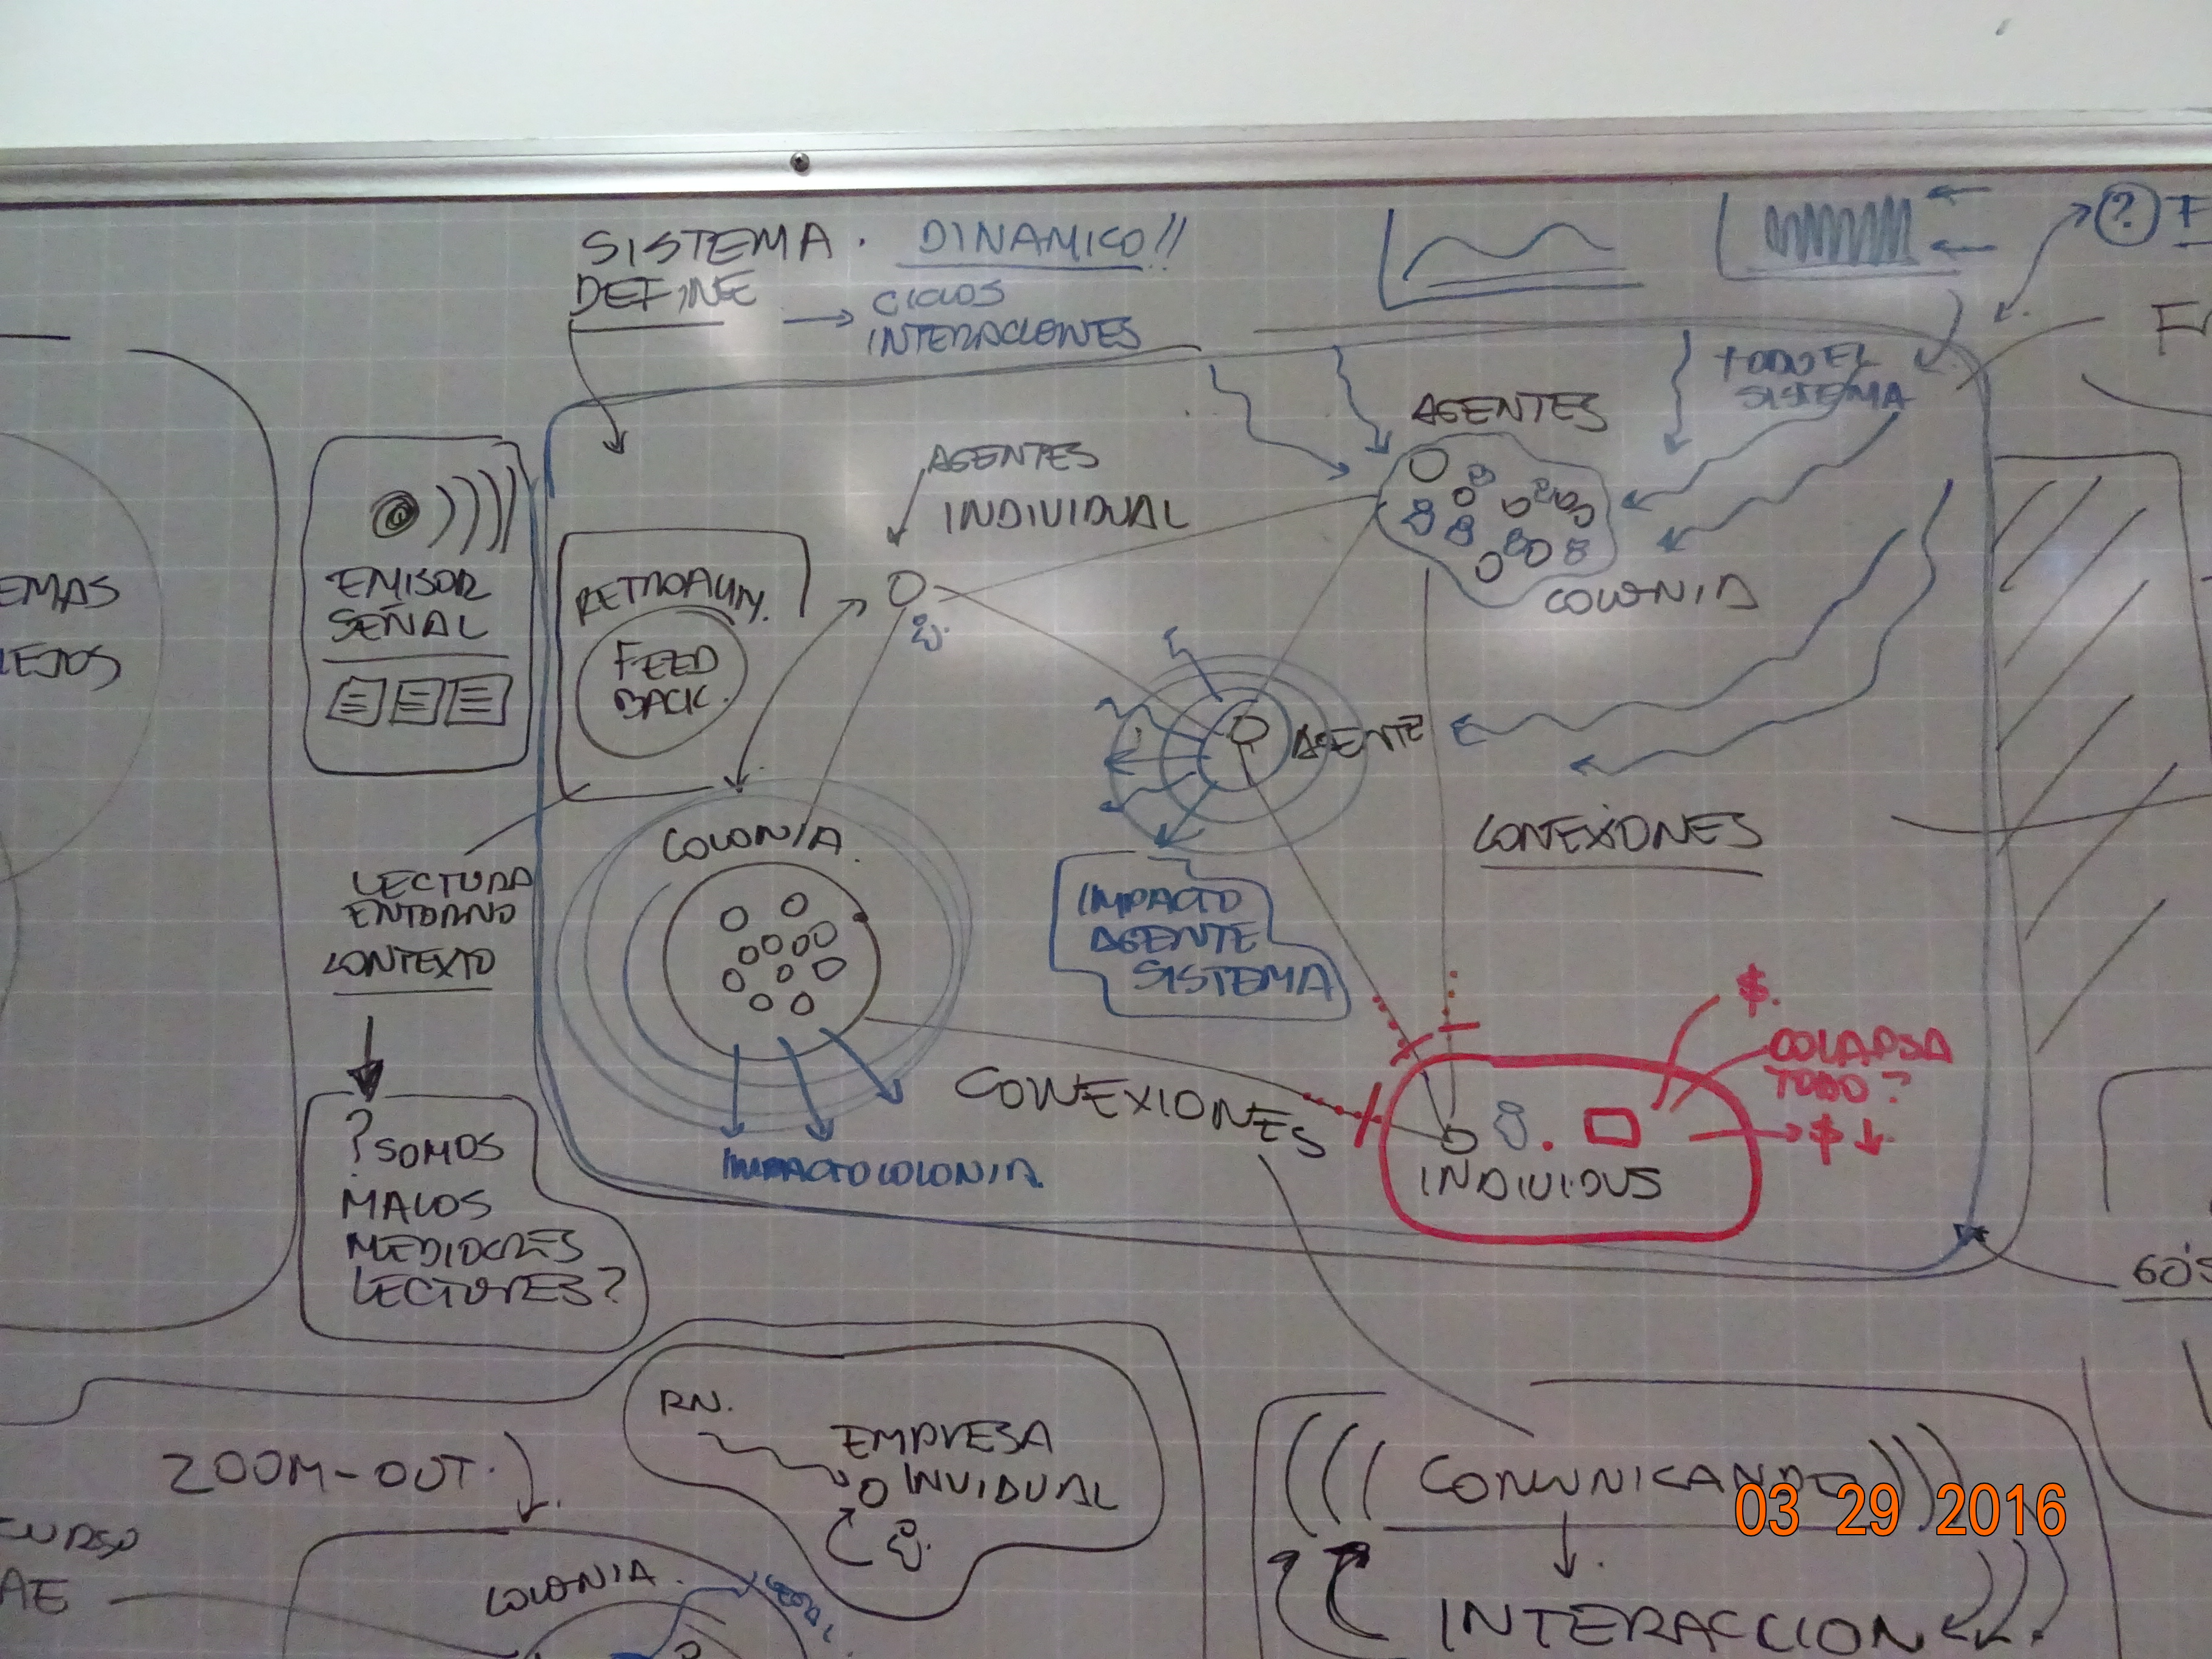 SISTEMA. DINAMICO!!
DEFINE
→ CICLOS
INTERACIONES
?
TODO EL
SISTEMA
AGENTES
COLONIA
AGENTES
INDIVIDUAL
EMISOR
SEÑAL
RETROALIM.
FEED
BACK.
EMAS
LEJOS
AGENTE
CONEXIONES
COLONIA.
LECTURA
ENTORNO
CONTEXTO
IMPACTO
AGENTE
SISTEMA
$.
COLAPSA
TODO?
$ ↓
INDIVIDUS
CONEXIONES
IMPACTO COLONIA
?SOMOS
MALOS
MEDIOCRES
LECTORES?
60'S
RN.
EMPRESA
INVIDUAL
ZOOM-OUT.
CURSO
AE
COLONIA.
COMUNICANDO
INTERACCION
03 29 2016